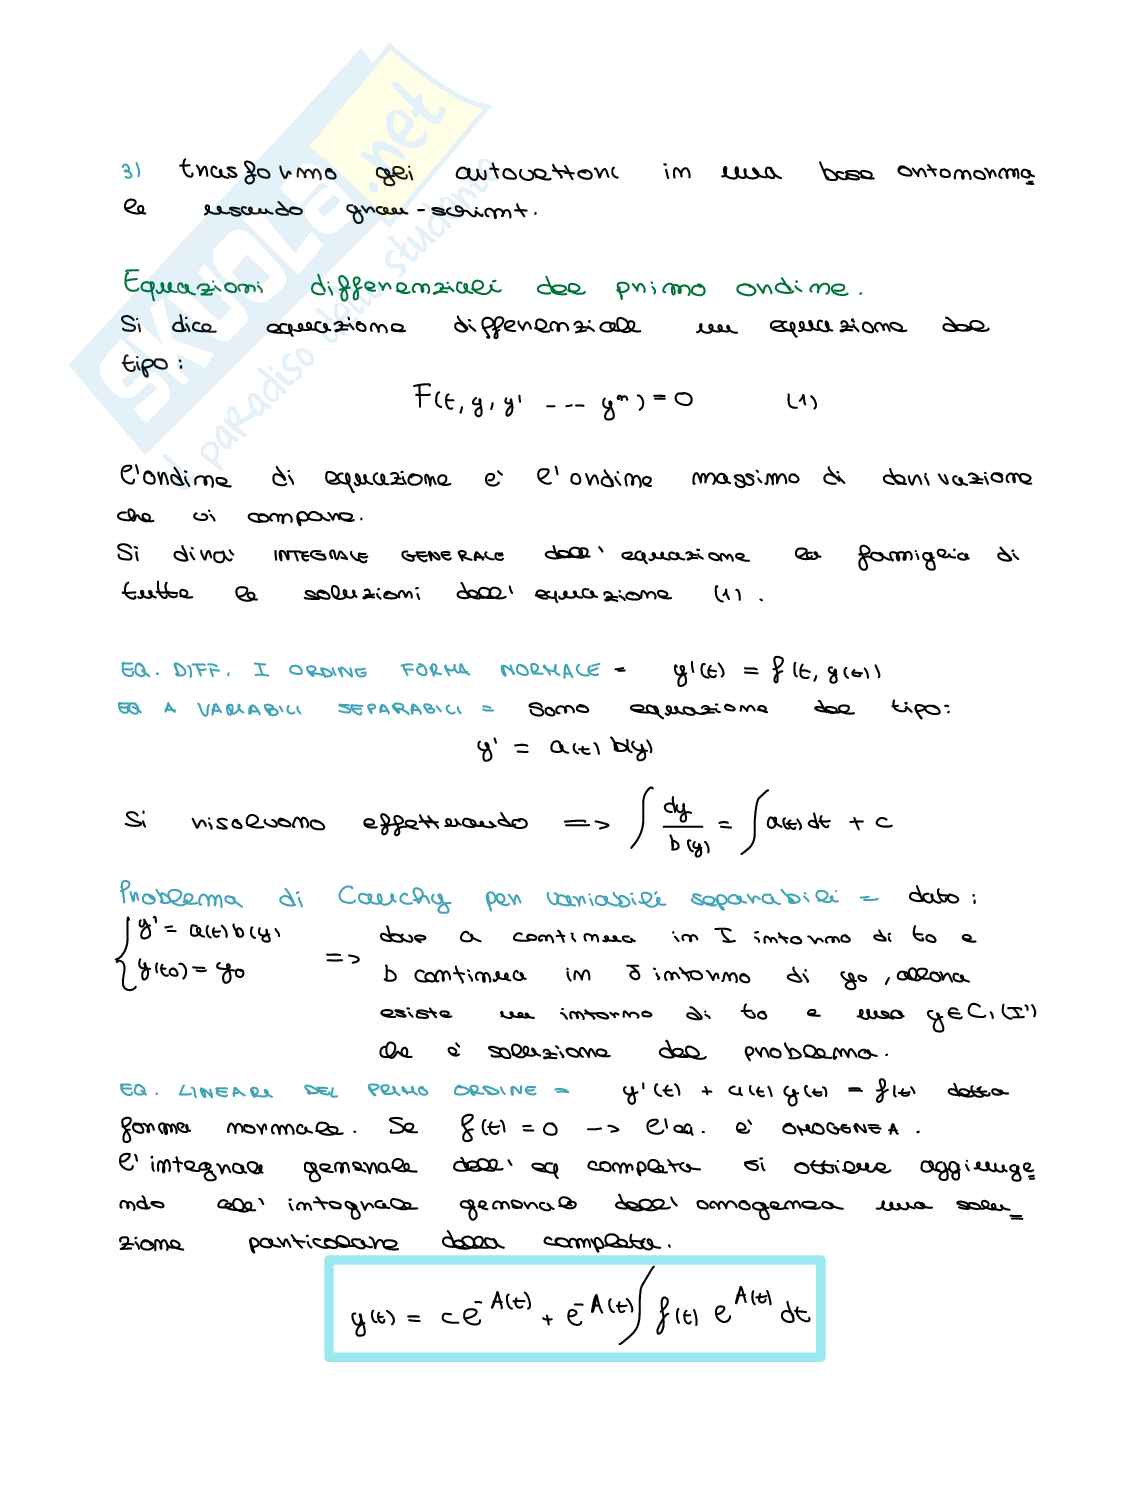 3) trasformo gli autovettori in una base ortonorma
le usando gram-schimt.
Equazioni differenziali del primo ordine.
Si dice equazione differenziale un equazione del
tipo:
F(t, y, y' ---- yⁿ) = 0 (1)
l'ordine di equazione è l'ordine massimo di derivazione
che vi compare.
Si dirà INTEGRALE GENERALE dell' equazione la famiglia di
tutte le soluzioni dell' equazione (1).
EQ. DIFF. I ORDINE FORMA NORMALE = y'(t) = f(t, y(t))
EQ A VARIABILI SEPARABILI = Sono equazione del tipo:
y' = a(t) b(y)
Si risolvono effettuando => ∫ dy/b(y) = ∫ a(t) dt + c
Problema di Cauchy per variabili separabili = dato:
{ y' = a(t) b(y)
y(t0) = y0
=> dove a continua in I intorno di t0 e
b continua in J intorno di y0, allora
esiste un intorno di t0 e una y∈C₁(I')
che è soluzione del problema.
EQ. LINEARI DEL PRIMO ORDINE = y'(t) + a(t) y(t) = f(t) detta
forma normale. Se f(t) = 0 -> l'eq. è OMOGENEA.
l'integrale generale dell' eq completa si ottiene aggiunge
ndo all' integrale generale dell' omogenea una solu_
zione particolare della completa.
y(t) = c e^{-A(t)} + e^{-A(t)} ∫ f(t) e^{A(t)} dt
SKUOLA.net
il paradiso dello studente